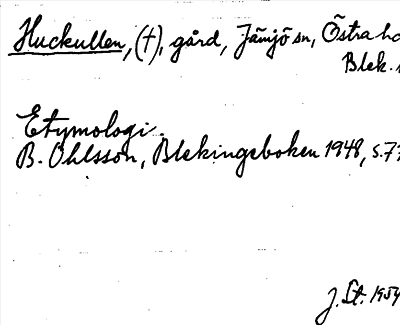 Huckullen, (†), gård, Jämjö sn, Östra h
Blek.
Etymologi.
B. Ohlsson, Blekingeboken 1948, s.77
J. St. 1954